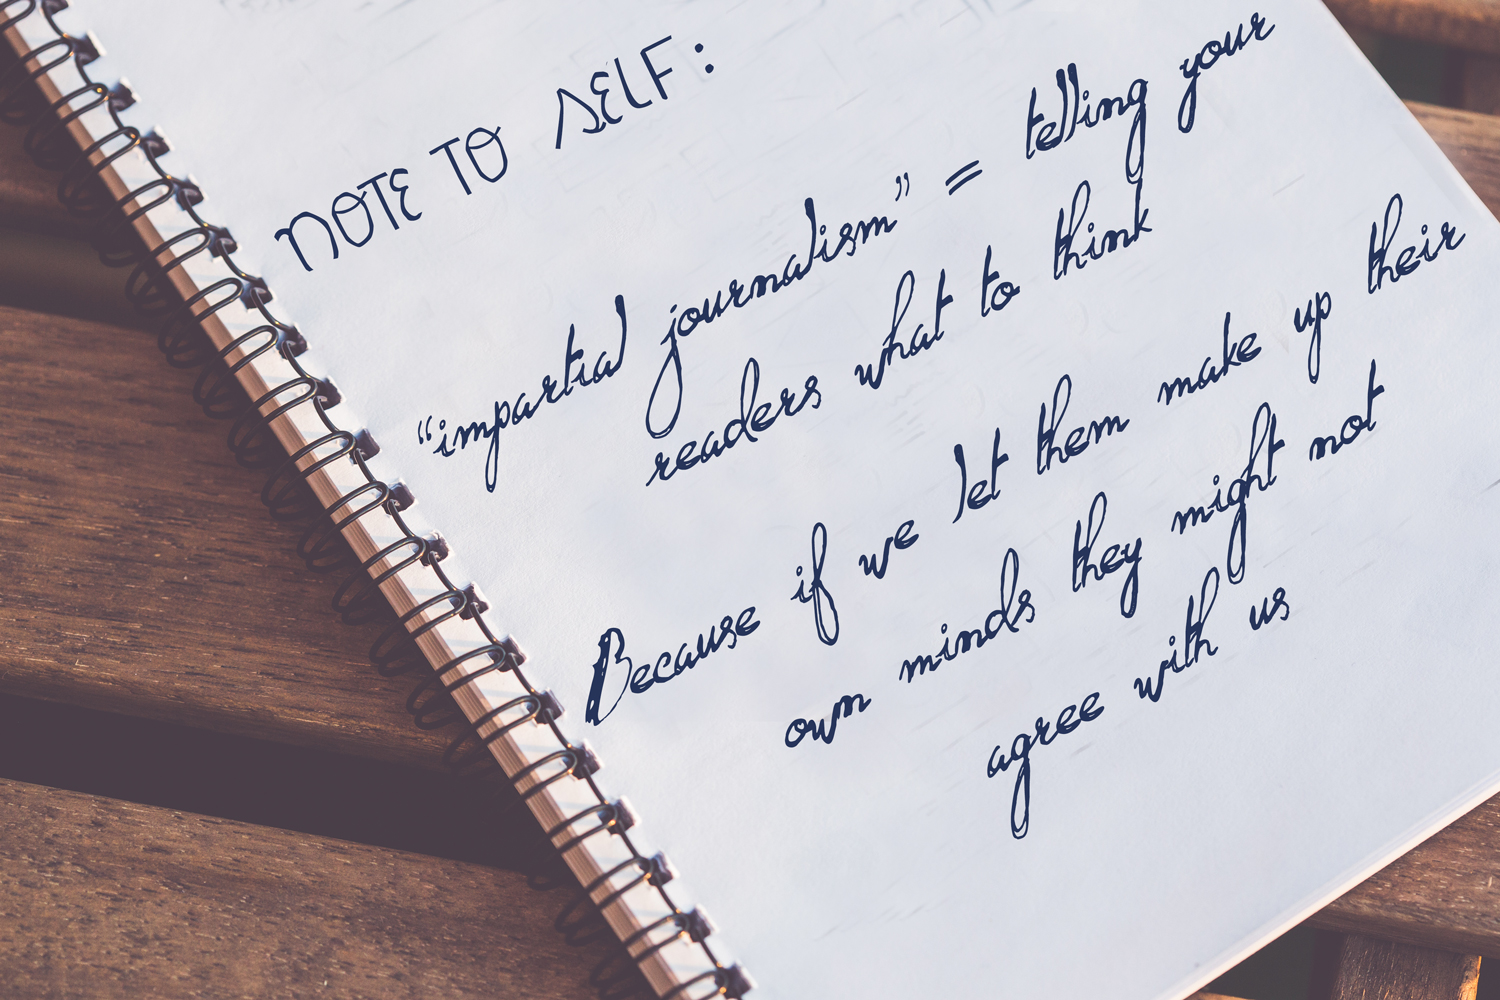 NOTE TO SELF:
“impartial journalism” = telling your
readers what to think
Because if we let them make up their
own minds they might not
agree with us